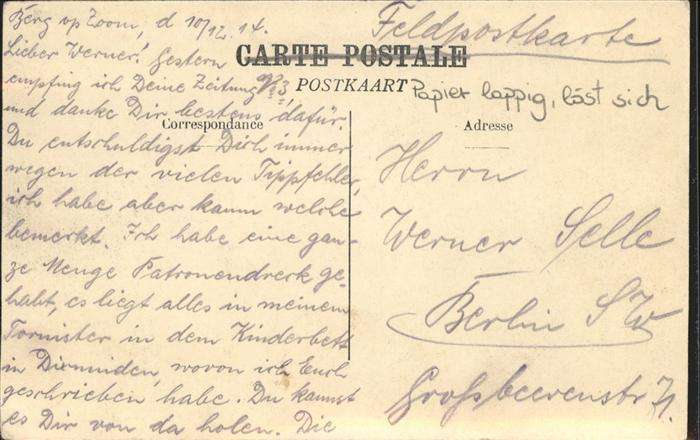 Berg op Zoom, d 10/12. 14.
Lieber Werner! Gestern
empfing ich Deine Zeitung No 3
und danke Dir bestens dafür.
Du entschuldigst Dich immer
wegen der vielen Tippfehler,
ich habe aber kaum welche
bemerkt. Ich habe eine gan-
ze Menge Patronendreck ge-
habt, es liegt alles in meinem
Tornister in dem Kinderbett
in Dixmuiden, wovon ich Euch
geschrieben habe. Du kannst
es Dir von da holen. Die
Feldpostkarte
CARTE POSTALE
POSTKAART
Papier lappig, löst sich
Correspondance
Adresse
Herrn
Werner Selle
Berlin SW
Großbeerenstr 71.